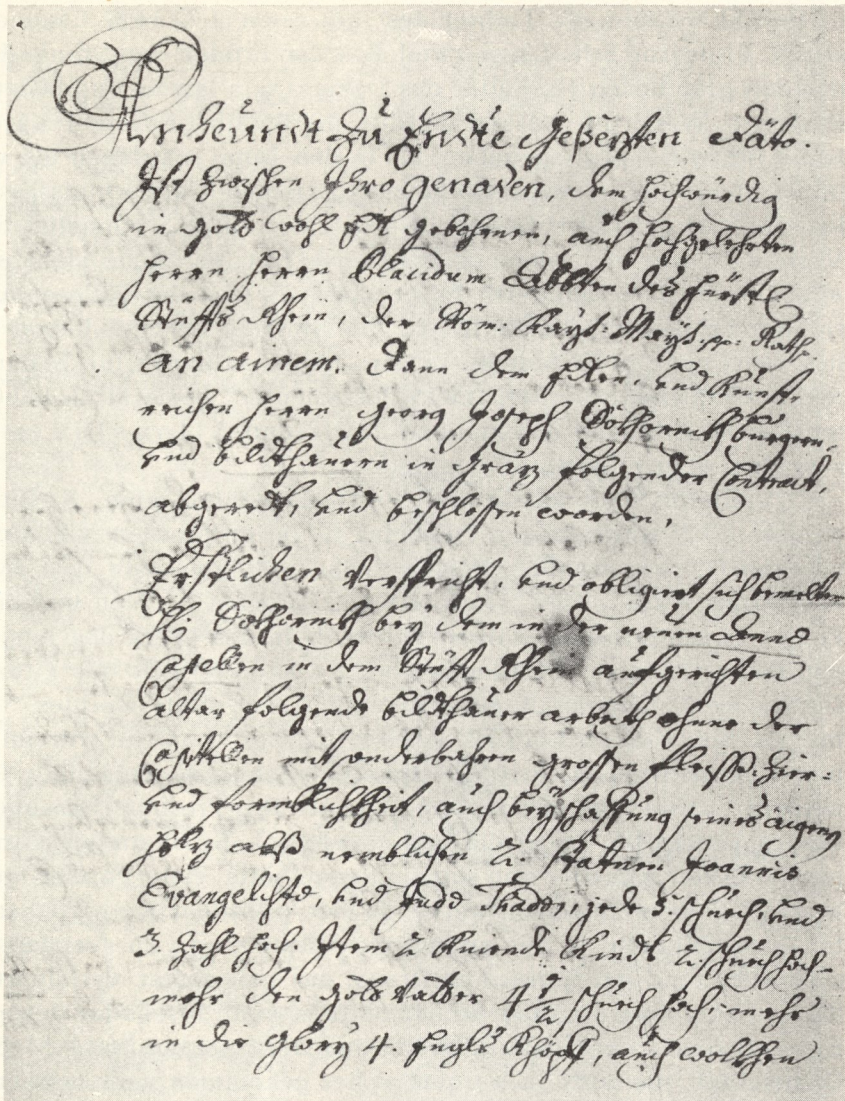 Anheundt zu Endte Gesezten Dato.
Ist zwischen Ihro Genaden, dem hochwürdig
in Gott Wohl Edl gebohrnen, auch hochgelehrten
Herrn Herrn Placidum Abbten des fürstl
Stüffts Rhein, der Röm: Kayl: Mayst. pp: Rath
an ainem. Dann dem Edlen, und Kunst-
reichen Herrn Georg Joseph Burgern,
und bildthauern in Gräz folgender Contract,
abgeredt, und beschlossen worden,
Erstlichen Verspricht, und obligiert sich bemelter
H: bey dem in der neuen Anna
Capellen in dem Stüfft Rhein aufgerichten
altar folgende bildthauer arbeith ohne der
Capitellen mit sonderbahren grossen fleiss, Zier-
und formblichkheit, auch beyschaffung seines aigens
holz alss nemblichen 2. Statuen Joannis
Evangelistæ, und Judæ Thaddei, jede 5. schuech, und
3. Zahl hoch. Item 2 kniende Kindl 2. schuech hoch-
mehr den Gott Vatter 4 1/2 schuech hoch, mehr
in die Glory 4. Engls Khöpff, auch wolkhen